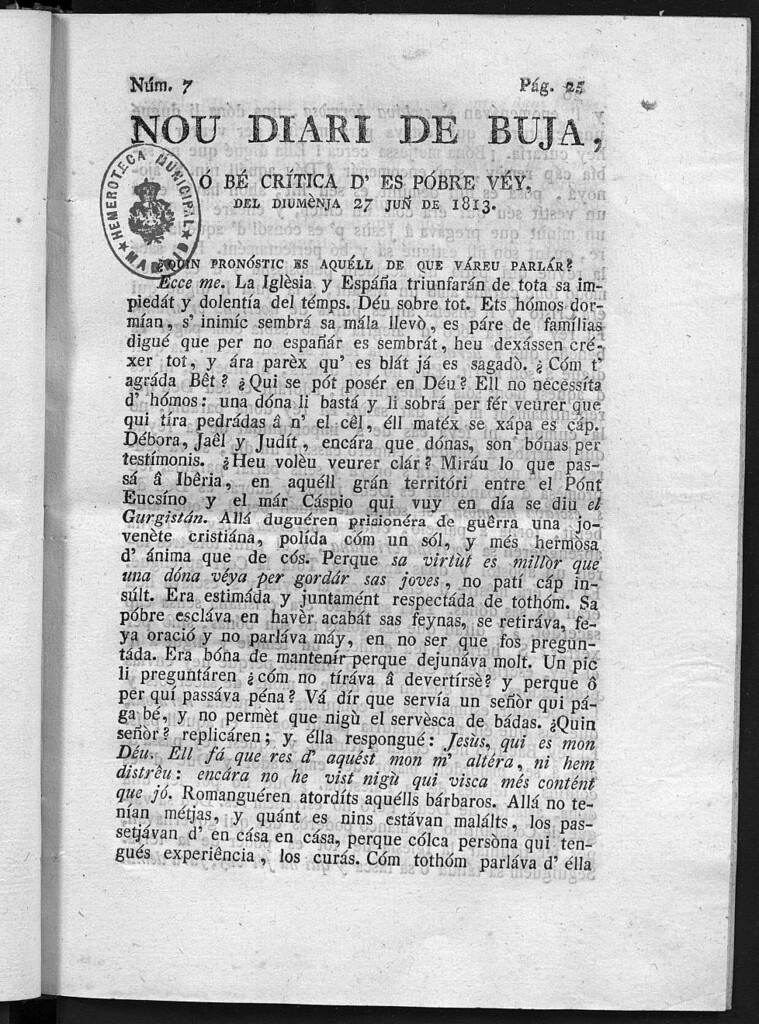 Núm. 7 Pág. 25
NOU DIARI DE BUJA,
Ó BÉ CRÍTICA D' ES PÓBRE VÉY,
DEL DIUMÈNJA 27 JUÑ DE 1813.
HEMEROTECA MUNICIPAL
★ MADRID ★
¿QUIN PRONÓSTIC ES AQUÉLL DE QUE VÁREU PARLÁR?
Ecce me. La Iglèsia y Espáña triunfarán de tota sa im-
piedát y dolentía del témps. Déu sobre tot. Ets hómos dor-
mían, s' inimíc sembrá sa mála llevò, es páre de famílias
digué que per no españár es sembrát, heu dexássen cré-
xer tot, y ára parèx qu' es blát já es sagadò. ¿Cóm t'
agráda Bêt? ¿Qui se pót posér en Déu? Ell no necessíta
d' hómos: una dóna li bastá y li sobrá per fér veurer que
qui tíra pedrádas â n' el cêl, éll matéx se xápa es cáp.
Débora, Jaêl y Judít, encára que dónas, son bónas per
testímonis. ¿Heu volèu veurer clár? Miráu lo que pas-
sá â Ibêria, en aquéll grán territóri entre el Pónt
Eucsíno y el már Cáspio qui vuy en día se diu el
Gurgistán. Allá duguéren prisionéra de guêrra una jo-
venète cristiána, polída cóm un sól, y més hermòsa
d' ánima que de cós. Perque sa virtùt es millòr que
una dóna véya per gordár sas joves, no patí cáp in-
súlt. Era estimáda y juntamént respectáda de tothóm. Sa
póbre escláva en havèr acabát sas feynas, se retiráva, fe-
ya oració y no parláva máy, en no ser que fos pregun-
táda. Era bóna de mantenír perque dejunáva molt. Un pic
li preguntáren ¿cóm no tíráva â devertírsè? y perque ô
per quí passáva péna? Vá dír que servía un señòr qui pá-
ga bé, y no permèt que nigù el servèsca de bádas. ¿Quin
señòr? replicáren; y élla respongué: Jesùs, qui es mon
Déu. Ell fá que res d' aquést mon m' altéra, ni hem
distrêu: encára no he vist nigù qui visca més contént
que jó. Romanguéren atordíts aquélls bárbaros. Allá no te-
nían métjas, y quánt es nins estávan malálts, los pas-
setjávan d' en cása en cása, perque cólca persòna qui ten-
gués experiência, los curás. Cóm tothóm parláva d' élla